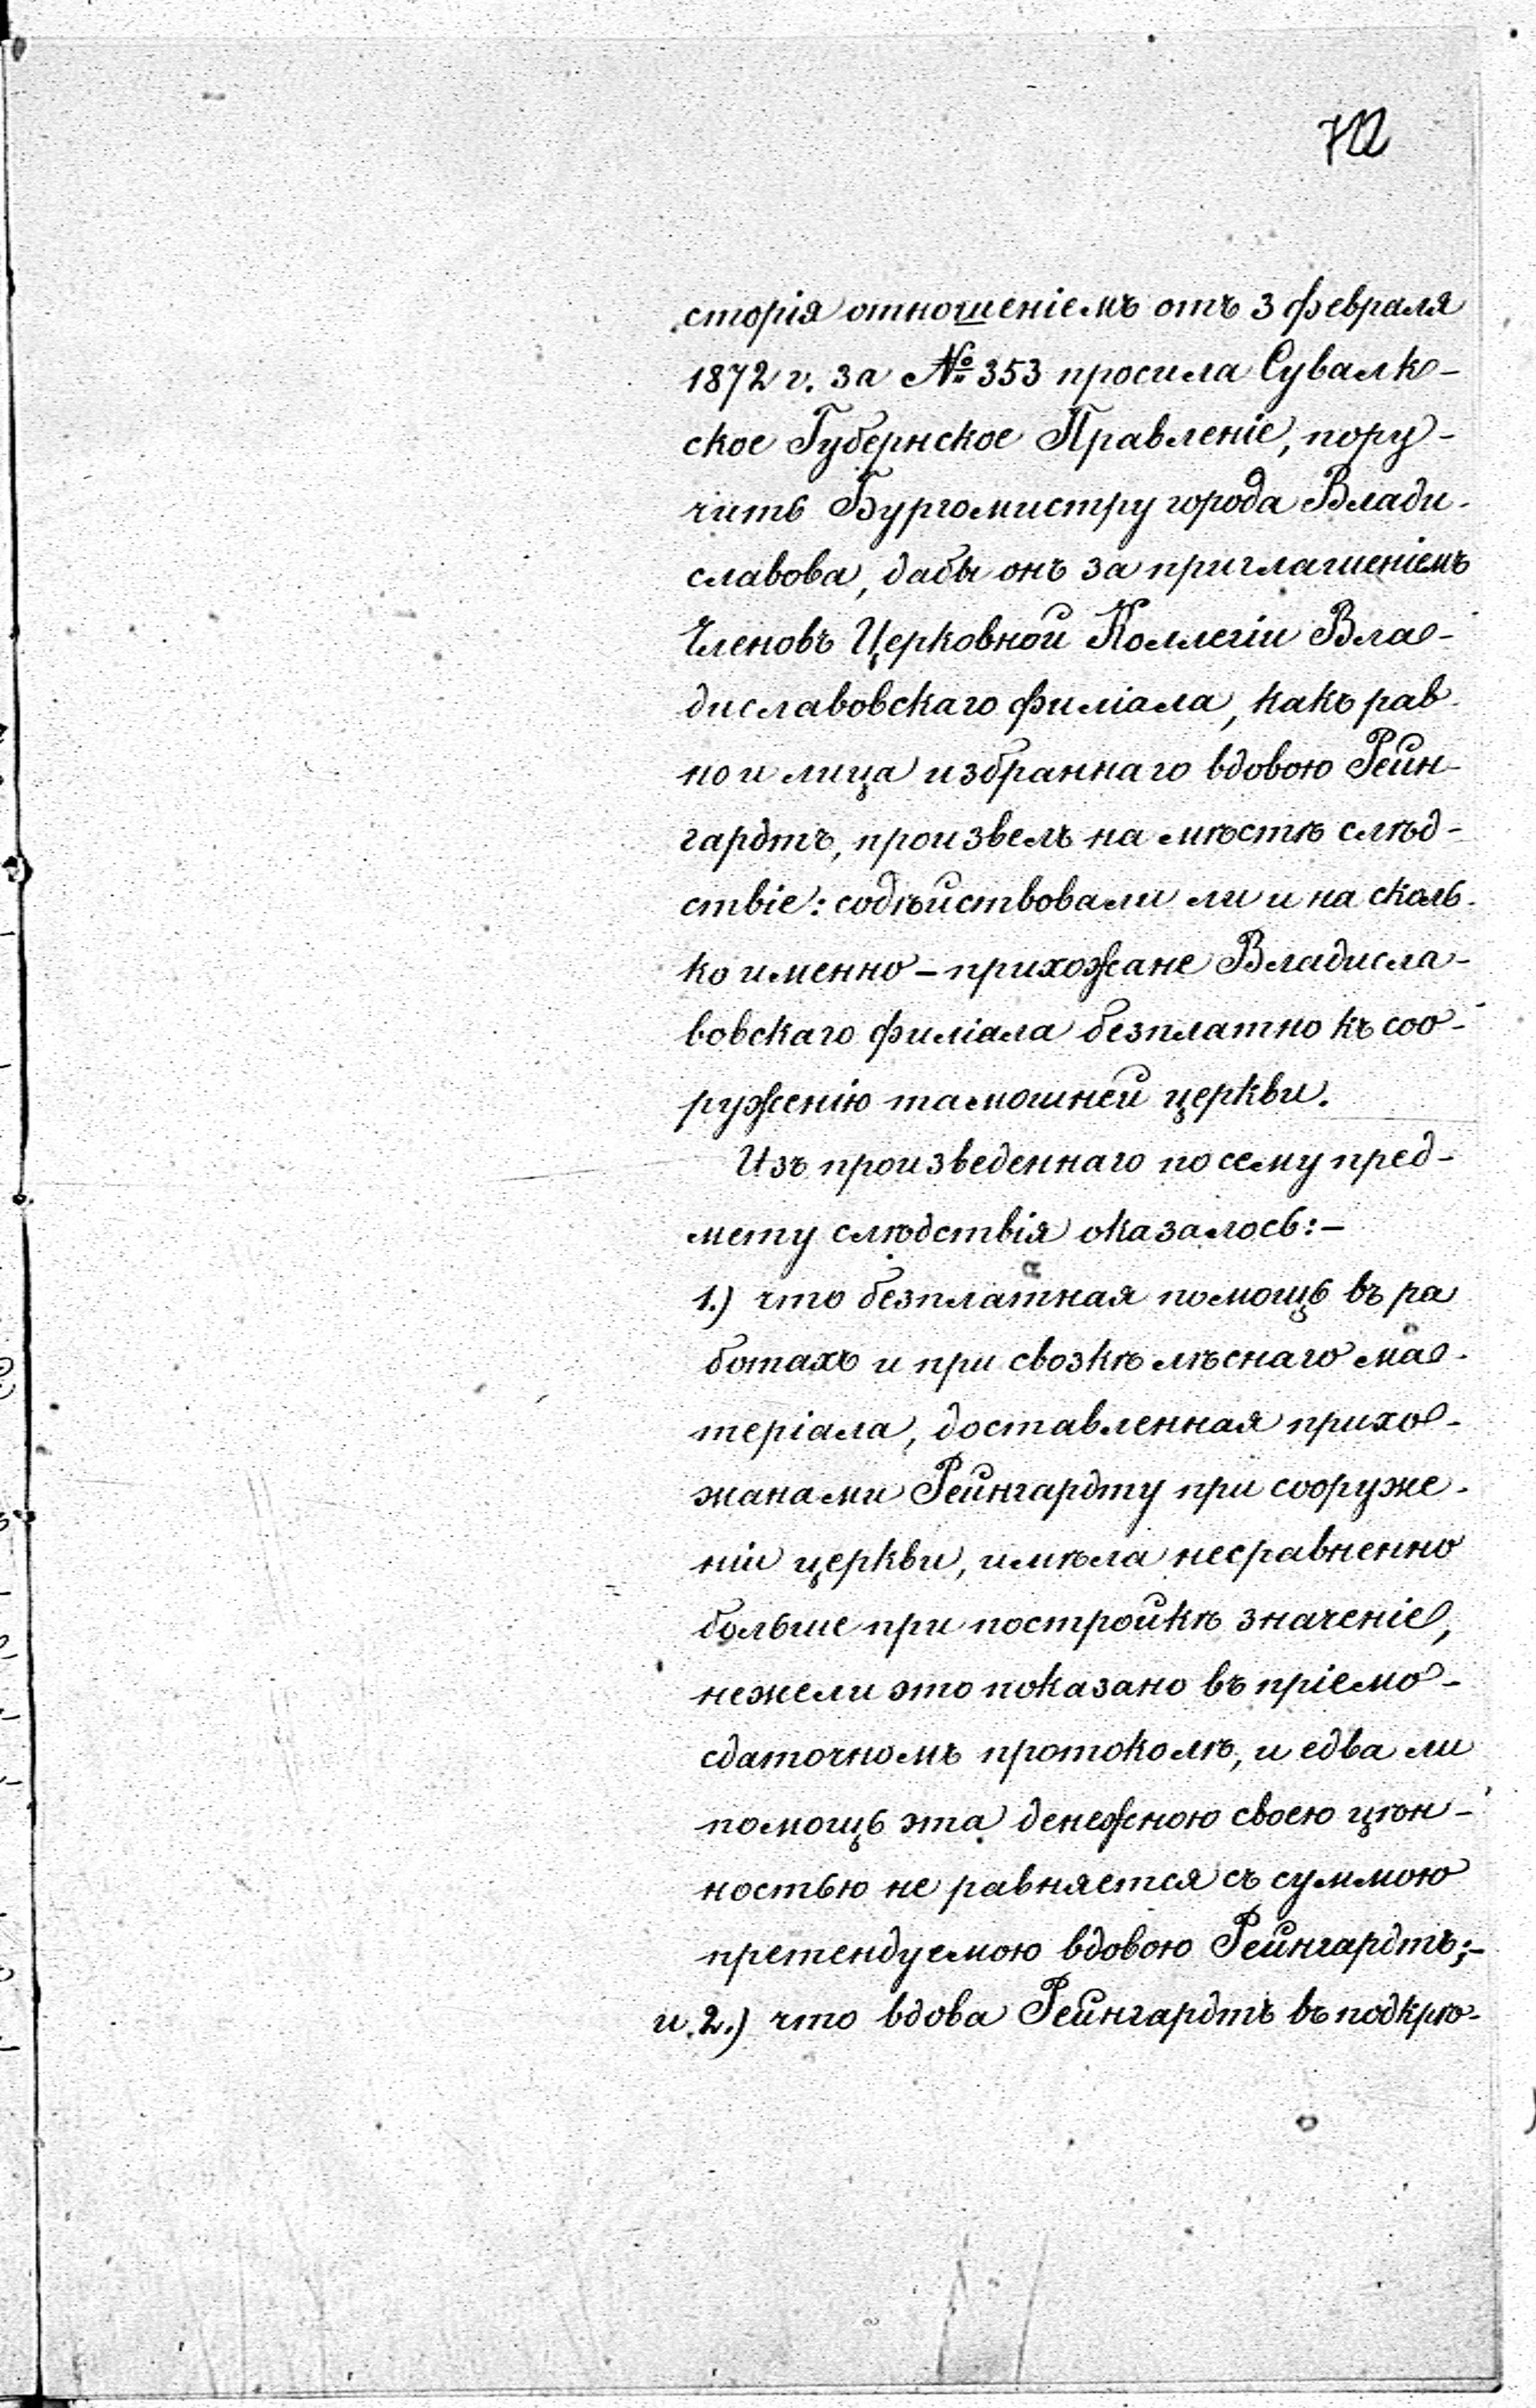 сторія отношеніемъ отъ 3 февраля
1872 г. за № 353 просила Сувалк-
ское Губернское Правленіе, пору-
чить Бургомистру города Влади-
славова, дабы онъ за приглашеніемъ
Членовъ Церковной Коллегіи Вла-
диславовскаго филіала, какъ рав-
но и лица избраннаго вдовою Рейн-
гардтъ, произвелъ на мѣстѣ слѣд-
ствіе: содѣйствовали ли и на сколь-
ко именно – прихожане Владисла-
вовскаго филіала безплатно къ соо-
руженію тамошней церкви.
Изъ произведеннаго по сему пред-
мету слѣдствія оказалось: –
1.) что безплатная помощь въ ра
ботахъ и при свозкѣ лѣснаго ма-
теріала, доставленная прихо-
жанами Рейнгардту при сооруже-
ніи церкви, имѣла несравненно
больше при постройкѣ значеніе,
нежели это показано въ пріемо-
сдаточномъ протоколѣ, и едва ли
помощь эта денежною своею цѣн-
ностью не равняется съ суммою
претендуемою вдовою Рейнгардтъ; –
и 2.) что вдова Рейнгардтъ въ подкрѣ-